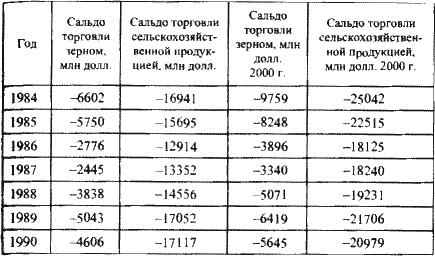 Год | Сальдо торговли зерном, млн долл. | Сальдо торговли сельскохозяйст- венной продук- цией, млн долл. | Сальдо торговли зерном, млн долл. 2000 г. | Сальдо торговли сельскохозяйствен- ной продукцией, млн долл. 2000 г.
1984 | –6602 | –16941 | –9759 | –25042
1985 | –5750 | –15695 | –8248 | –22515
1986 | –2776 | –12914 | –3896 | –18125
1987 | –2445 | –13352 | –3340 | –18240
1988 | –3838 | –14556 | –5071 | –19231
1989 | –5043 | –17052 | –6419 | –21706
1990 | –4606 | –17117 | –5645 | –20979